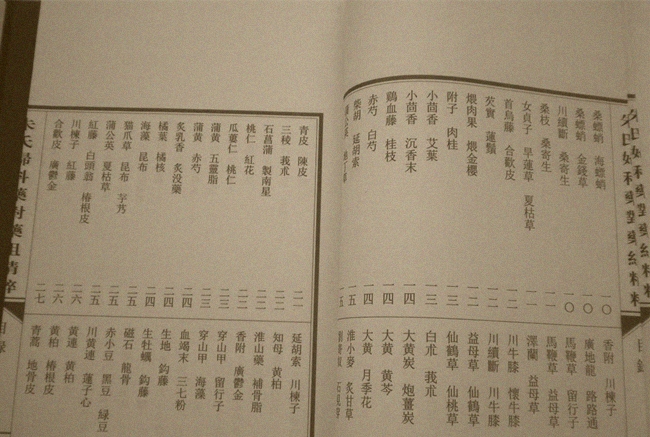 桑螵蛸 海螵蛸 一〇
桑螵蛸 金錢草 一〇
川續斷 桑寄生 一〇
桑枝 桑寄生 一一
女貞子 旱蓮草 夏枯草 一一
首烏藤 合歡皮 一二
芡實 蓮鬚 一二
煨肉果 煨金櫻 一二
附子 肉桂 一三
小茴香 艾葉 一三
小茴香 沉香末 一四
鷄血藤 桂枝 一四
赤芍 白芍 一四
柴胡 延胡索 一五
一五
香附 川楝子
廣地龍 路路通
馬鞭草 留行子
馬鞭草 益母草
澤蘭 益母草
川牛膝 懷牛膝
川續斷 川牛膝
益母草 仙鶴草
仙鶴草 仙桃草
白朮 莪朮
大黃炭 炮薑炭
大黃 黃芩
大黃 月季花
淮小麥 炙甘草
青皮 陳皮 二一
三稜 莪朮 二二
石菖蒲 製南星 二二
桃仁 紅花 二二
瓜蔞仁 桃仁 二三
蒲黃 五靈脂 二三
蒲黃 赤芍 二三
炙乳香 炙沒藥 二四
橘葉 橘核 二四
海藻 昆布 二四
貓爪草 昆布 芋艿 二五
蒲公英 夏枯草 二五
紅藤 白頭翁 椿根皮 二五
川楝子 紅藤 二六
合歡皮 廣鬱金 二七
延胡索 川楝子
知母 黃柏
淮山藥 補骨脂
香附 廣鬱金
穿山甲 留行子
穿山甲 海藻
血竭末 三七粉
生地 鈎藤
生牡蠣 鈎藤
磁石 龍骨
赤小豆 黑豆 綠豆
川黃連 蓮子心
黃連 黃柏
黃柏 椿根皮
青蒿 地骨皮
朱氏婦科藥對藥組精粹
目錄